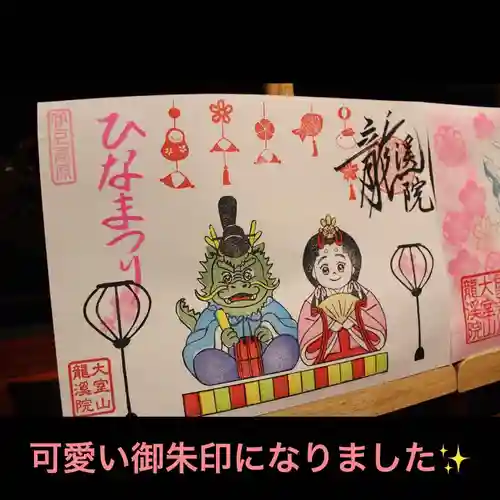 伊豆高原
ひなまつり
龍溪院
大室山
龍溪院
大室山
龍溪院
可愛い御朱印になりました✨